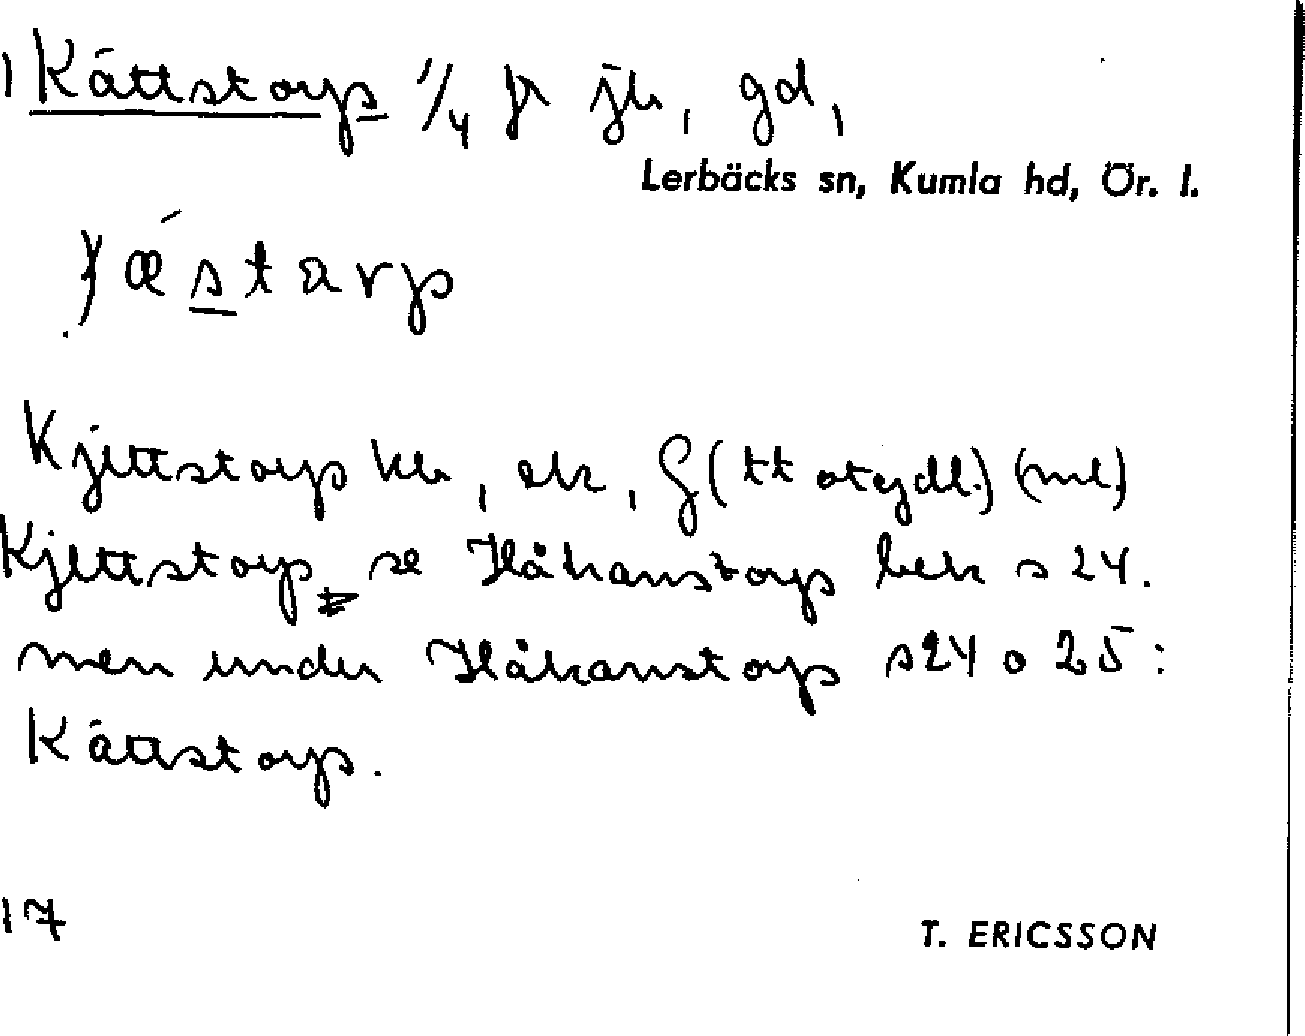 1 Kättstorp 1/4 fr jb, gd,
Lerbäcks sn, Kumla hd, Ör. l.
ǽstarp
Kjettstorp kb, ek, G (tt otydl.) (ml)
Kjettstorp, se Håkanstorp bek s 24.
men under Håkanstorp s 24 o 25:
Kättstorp.
17
T. ERICSSON